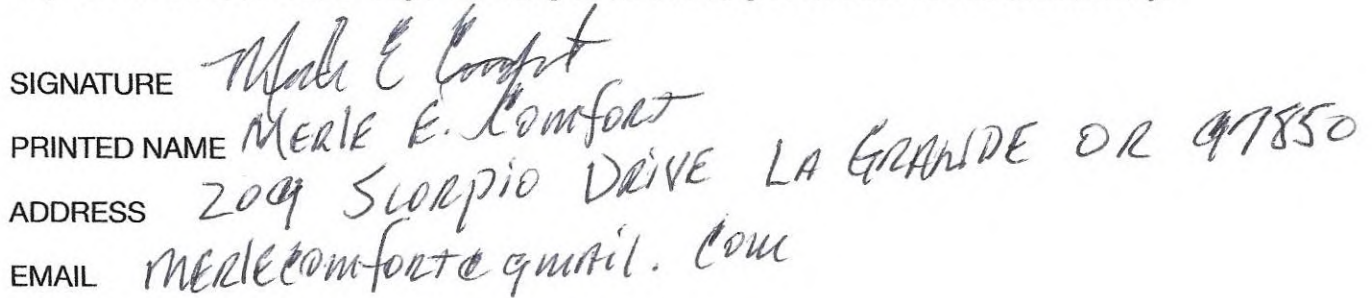 SIGNATURE Merle E Comfort
PRINTED NAME MERLE E. Comfort
ADDRESS 209 SCORPIO DRIVE LA GRANDE OR 97850
EMAIL merlecomfort@gmail.com